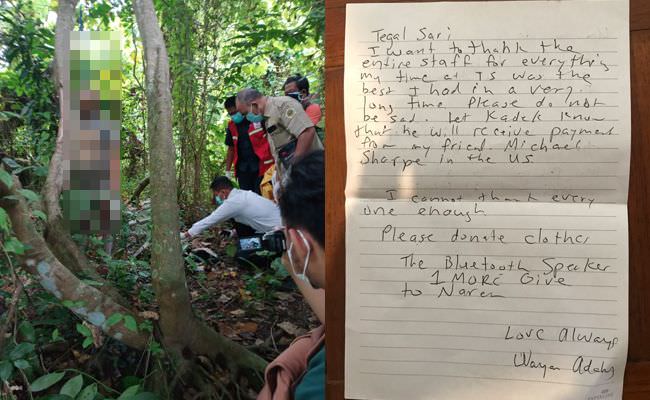 Tegal Sari
I want to thank the
entire staff for everything
my time at TS was the
best I had in a very
long time Please do not
be sad. Let Kadek know
that he will receive payment
from my friend Michael
Sharpe in the US
I cannot thank every
one enough
Please donate clothes
The Bluetooth Speaker
1 MORE Give
to Naren
Love Always
Wayan